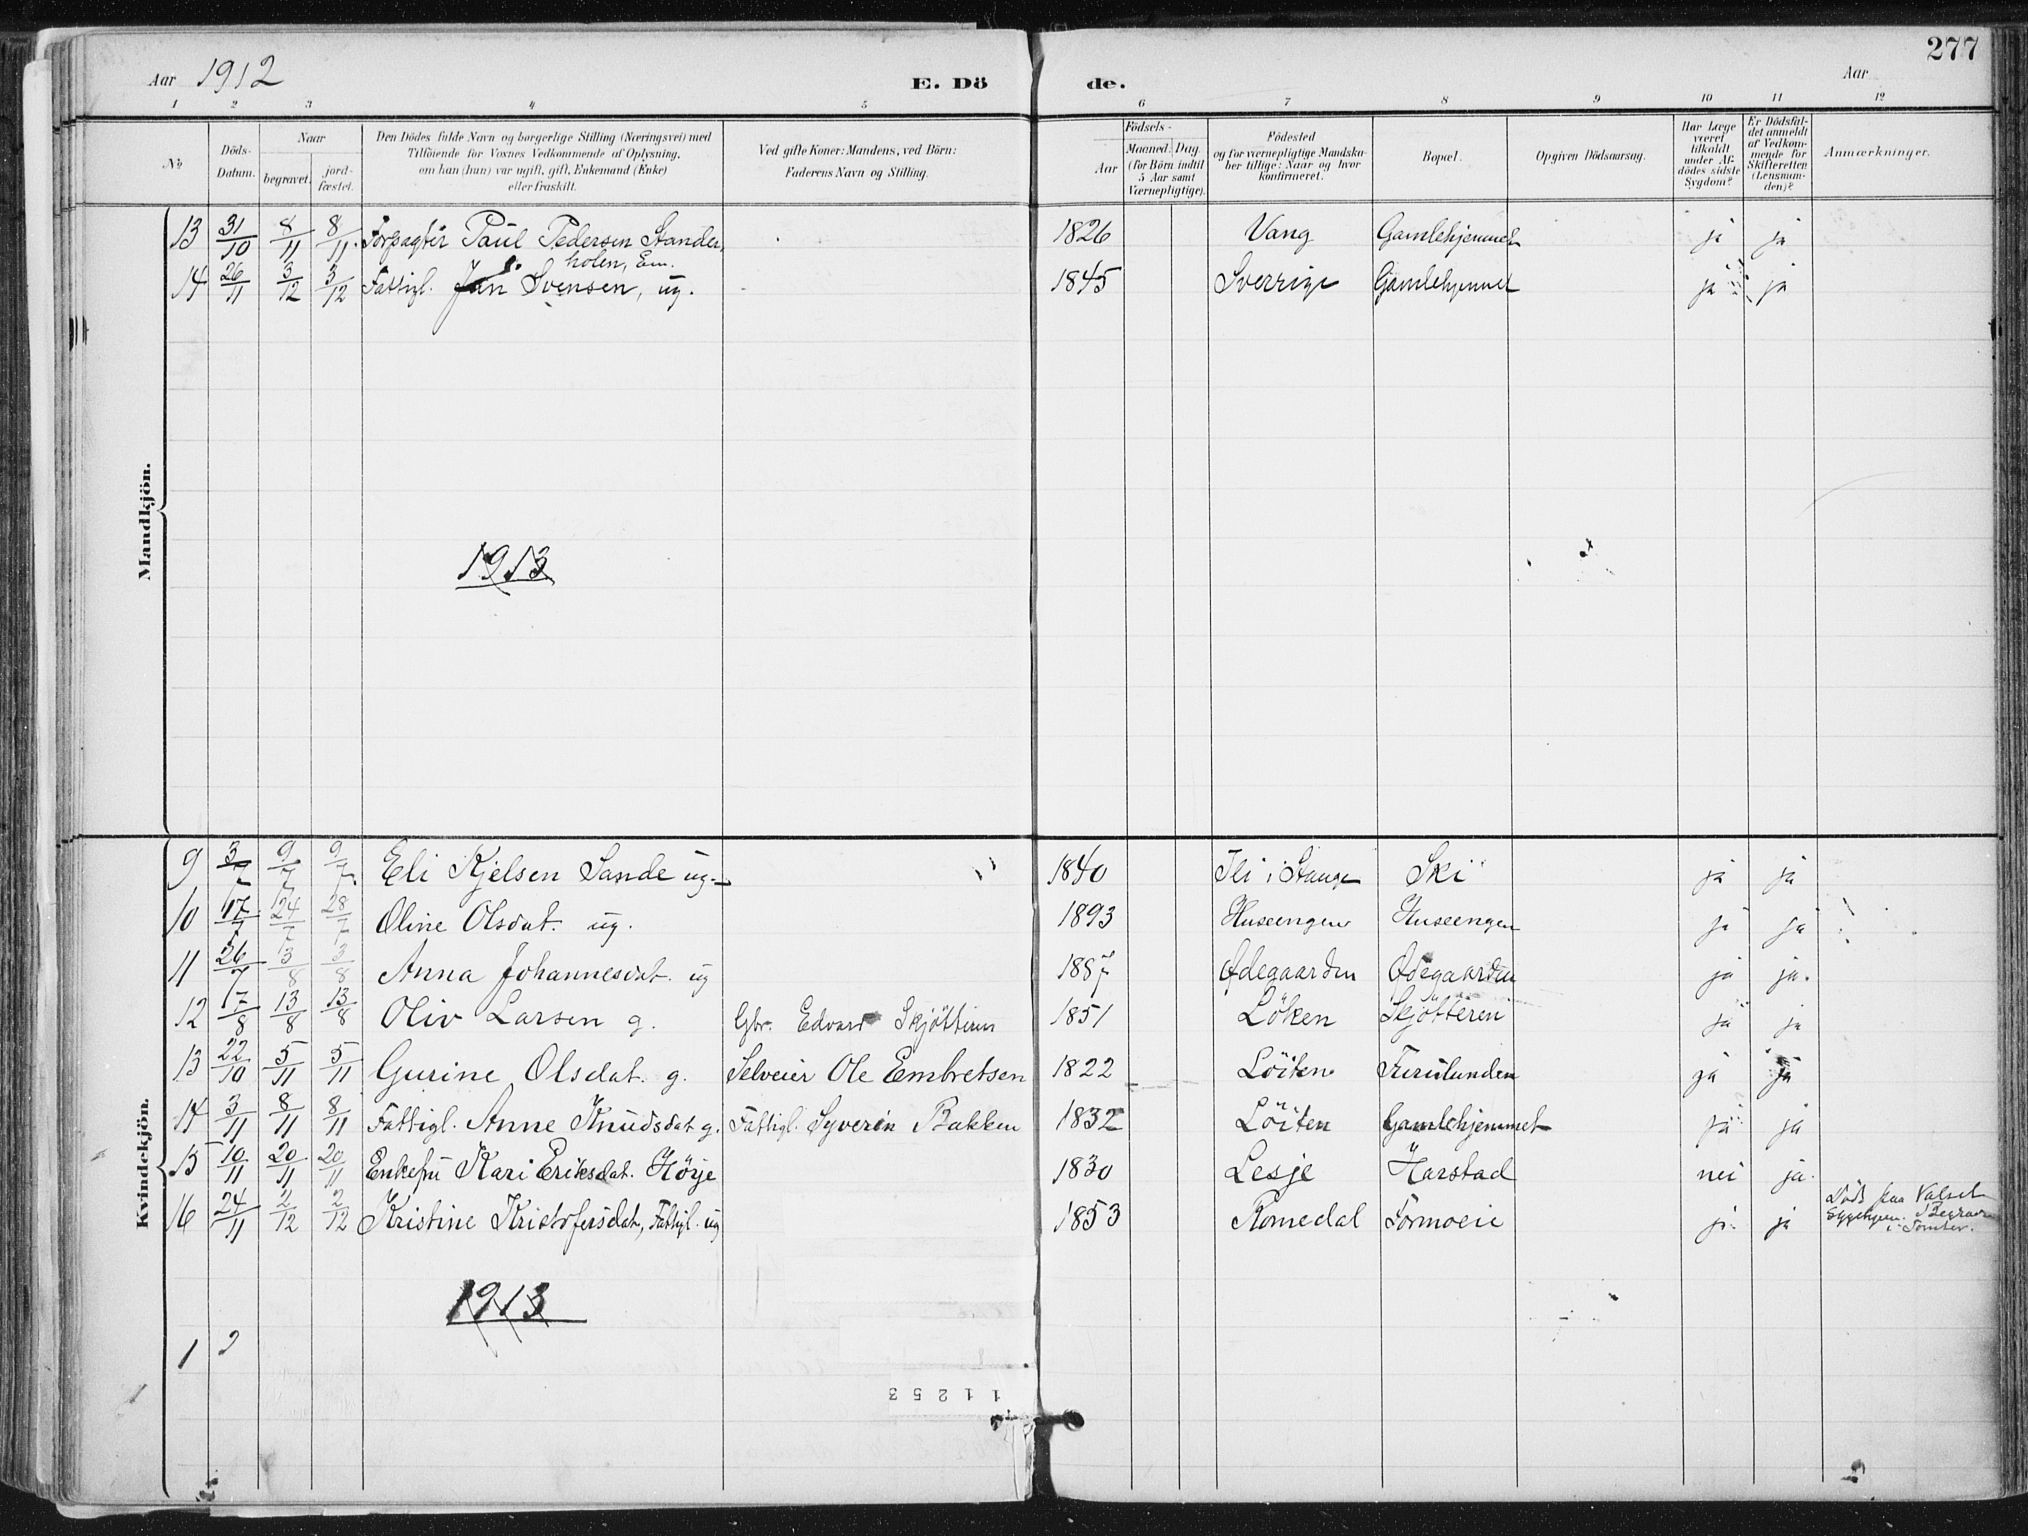 277
Aar 1912 E. Dö de. Aar
1 2 3 4 5 6 7 8 9 10 11 12
No
Döds-Datum.
Naar
begravet.
jord-fæstet.
Den Dödes fulde Navn og borgerlige Stilling (Næringsvei) med
Tilföiende for Voxnes Vedkommende af Oplysning,
om han (hun) var ugift, gift, Enkemand (Enke)
eller fraskilt.
Ved gifte Koner: Mandens, ved Börn:
Faderens Navn og Stilling.
Födsels-
Aar
Maaned. Dag.
(for Börn indtil
5 Aar samt
Værnepligtige).
Födested
og for værnepligtige Mandska-
ber tillige: Naar og hvor
konfirmeret.
Bopæl.
Opgiven Dödsaarsag.
Har Læge
været
tilkaldt
under Af-
dödes sidste
Sygdom?
Er Dödsfal-
det anmeldt
af Vedkom-
mende for
Skifteretten
(Lensman-
den)?
Anmærkninger.
Mandkjön.
13 31/10 8/11 8/11 Forpagter Paul Pedersen Stander, 1826 Vang Gamlehjemmet ja ja
holen, Em.
14 26/11 3/12 3/12 Fattigl. Jan Svensen, ug. 1845 Sverrige Gamlehjemmet ja ja
1913
Kvindekjön.
9 3/7 9/7 9/7 Eli Kjelsen Sande ug. 1840 Ili i Stange Ski ja ja
10 17/7 24/7 28/7 Oline Olsdat. ug. 1893 Huseengen Huseengen ja ja
11 26/7 3/8 3/8 Anna Johannesdat. ug 1887 Ødegaarden Ødegaarden ja ja.
12 7/8 13/8 13/8 Oliv Larsen g. Gbr. Edvard 1851 Löken ja ja
13 22/10 5/11 5/11 Gurine Olsdat. g. Selveier Ole Embretsen 1822 Löiten ja ja
14 3/11 8/11 8/11 Fattigl. Anne Knudsdat g. Fattigl. Syverin Bakken 1832 Löiten Gamlehjemmet ja ja
15 10/11 20/11 20/11 Enkefru Kari Eriksdat. Hörje 1830 Lesje Harstad nei ja.
16 24/11 2/12 2/12 Kristine Kristofersdat, Fattigl. ug 1853 Romedal Tormoeie ja ja Död paa Valset
i Tomter.
1913
1
11253